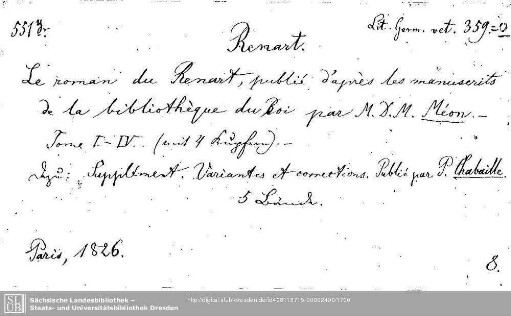 Lit. Germ. vet. 359
Renart.
Le roman du Renart, publié d'après les manuscrits
de la bibliothèque du Roi par M. D. M. Méon. –
Tome I–IV. (mit 4 Kupfern). –
dazu: Supplément. Variantes et corrections. Publié par P. Chabaille.
5 Bände.
Paris, 1826.
8.
SLUB
Sächsische Landesbibliothek –
Staats- und Universitätsbibliothek Dresden